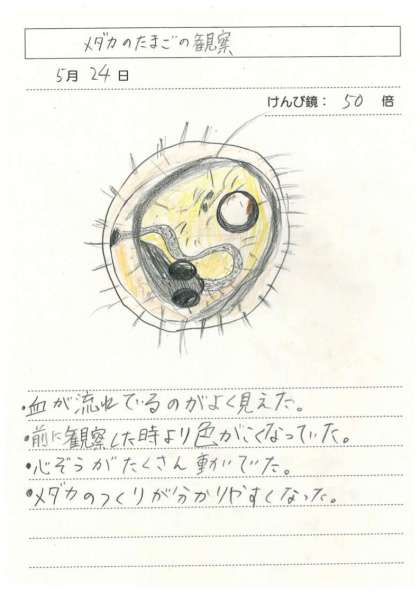 メダカのたまごの観察
5月 24日
けんび鏡： 50 倍
・血が流れているのがよく見えた。
・前に観察した時より色がこくなっていた。
・心ぞうがたくさん動いていた。
・メダカのつくりが分かりやすくなった。